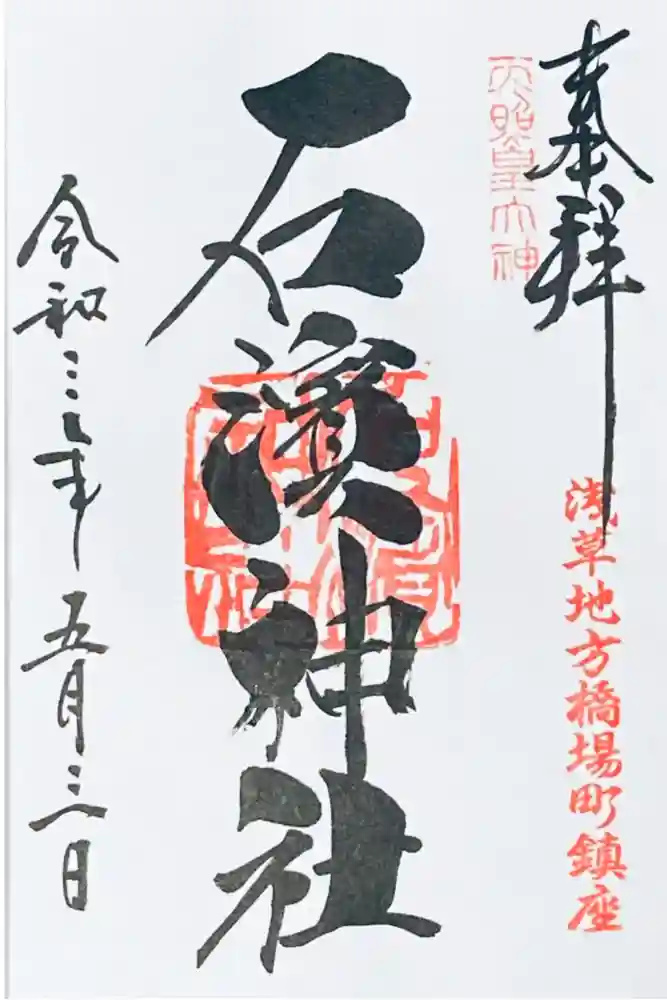 奉拝
浅草地方橋場町鎮座
天照皇大神
石濱神社
令和三年五月三日